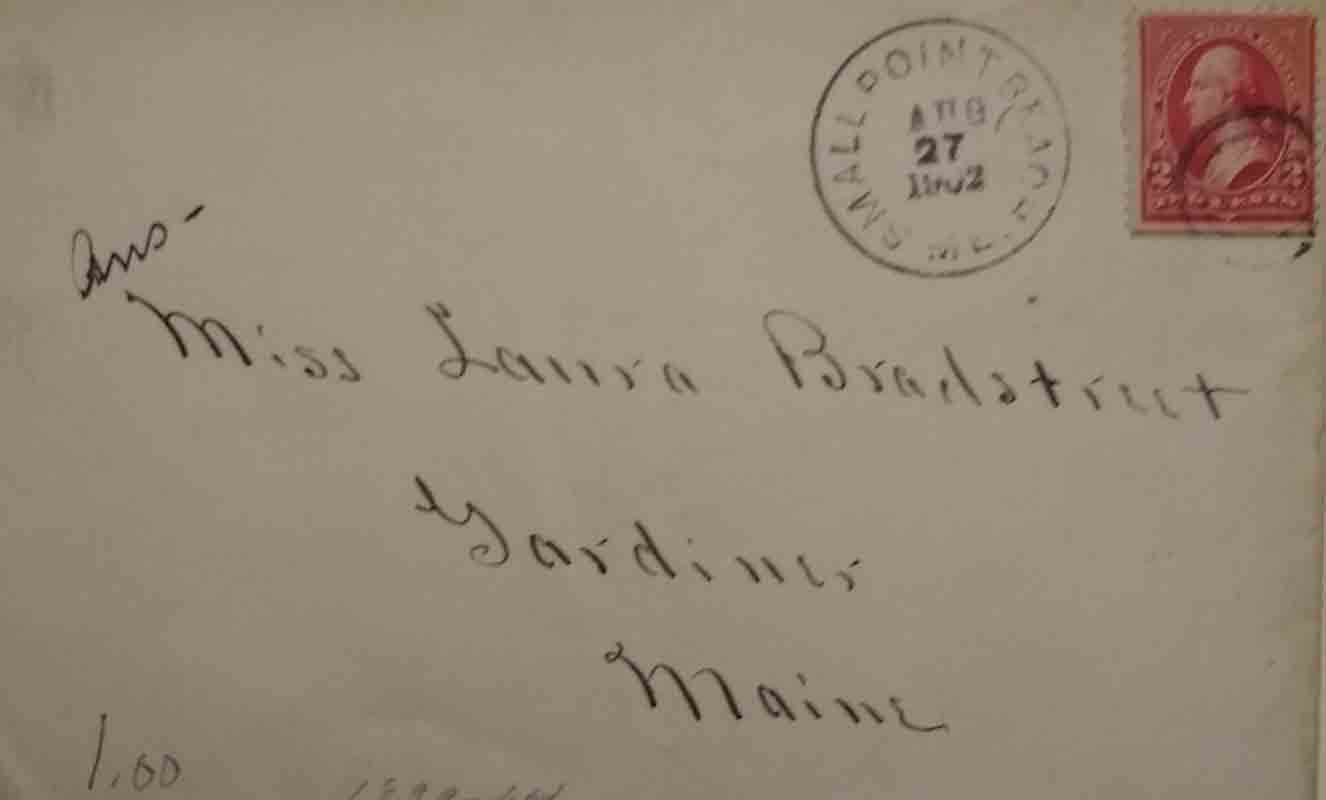 SMALL POINT BEACH, ME.
AUG
27
1902
2 2
Ans-
Miss Laura Bradstreet
Gardiner
Maine
1.00